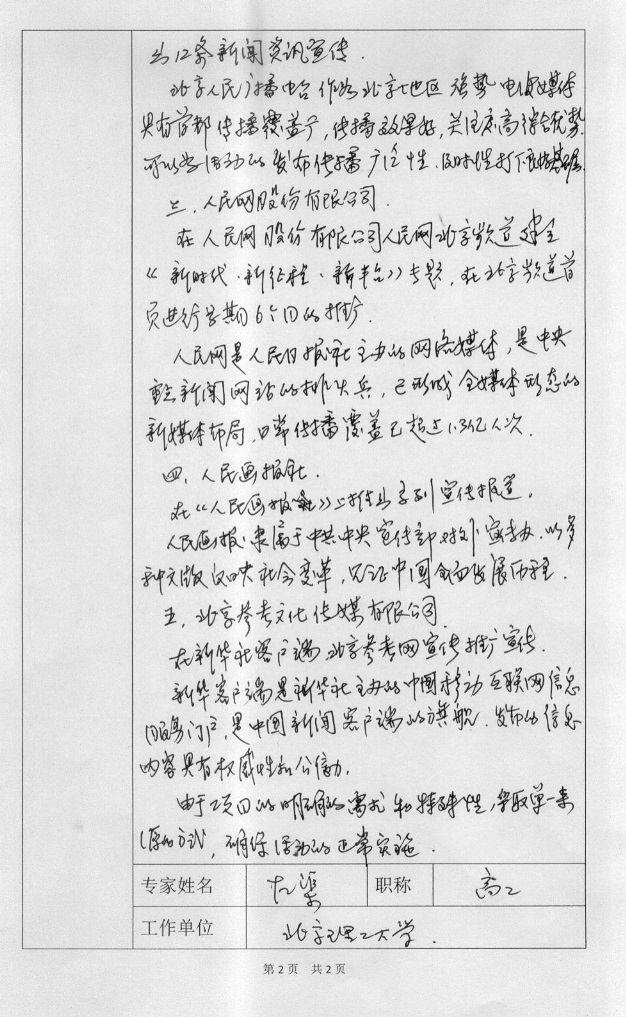 出12条新闻资讯宣传.
北京人民广播电台作为北京地区强势电媒体
具有首都传播覆盖广，传播效果好，关注度高综合优势
可以为活动的发布传播广泛性.及时性打下良好基础.
三.人民网股份有限公司.
在人民网股份有限公司人民网北京频道建立
《新时代·新征程·新丰台》专题，在北京频道首
页进行为期6个月的推广.
人民网是人民日报社主办的网络媒体，是中央
重点新闻网站的排头兵，已形成全媒体形态的
新媒体布局，日常传播覆盖已超过1.3亿人次.
四.人民画报社.
在《人民画报》上推出系列宣传报道.
人民画报隶属于中共中央宣传部对外宣传办.以多
种文版反映社会变革，见证中国全面发展历程.
五.北京参考文化传媒有限公司
在新华社客户端北京参考网宣传推广宣传.
新华客户端是新华社主办的中国移动互联网信息
服务门户，是中国新闻客户端的旗舰.发布的信息
内容具有权威性和公信力.
由于项目的明确的需求和特殊性，采取单一来
源的方式，确保活动的正常实施.
专家姓名 职称 高工
工作单位 北京理工大学.
第2页 共2页